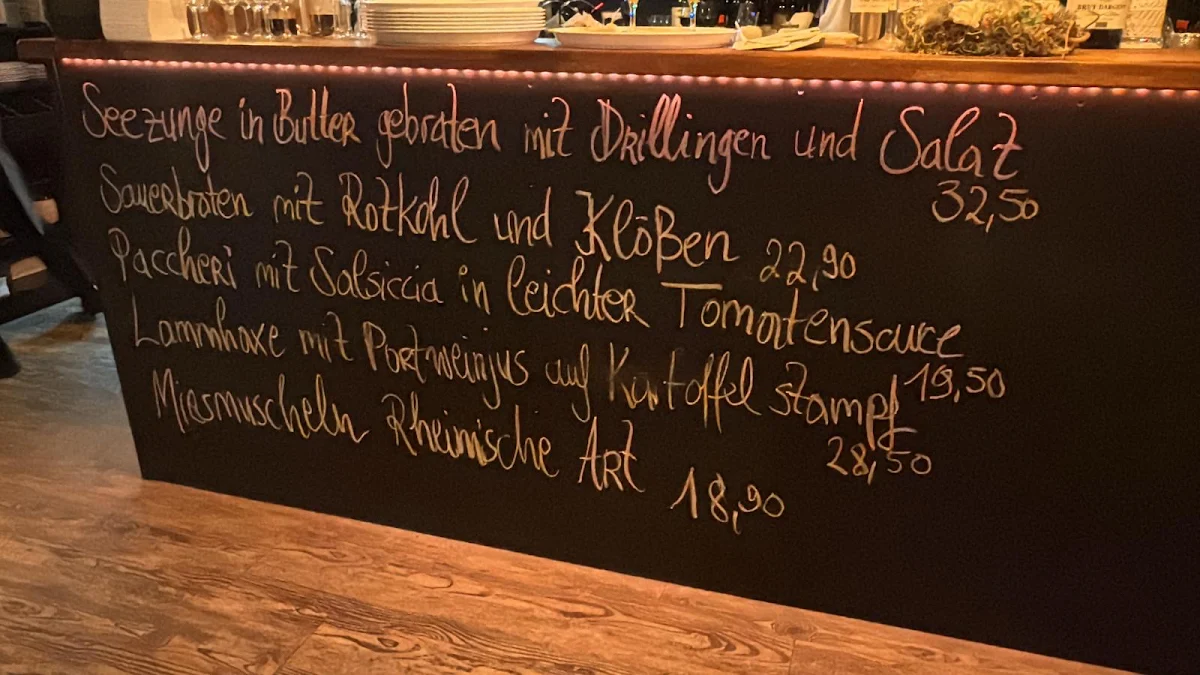 Seezunge in Butter gebraten mit Drillingen und Salat
32,50
Sauerbraten mit Rotkohl und Klößen 22,90
Paccheri mit Salsiccia in leichter Tomatensauce
19,50
Lammhaxe mit Portweinjus auf Kartoffelstampf
28,50
Miesmuscheln Rheinische Art 18,90